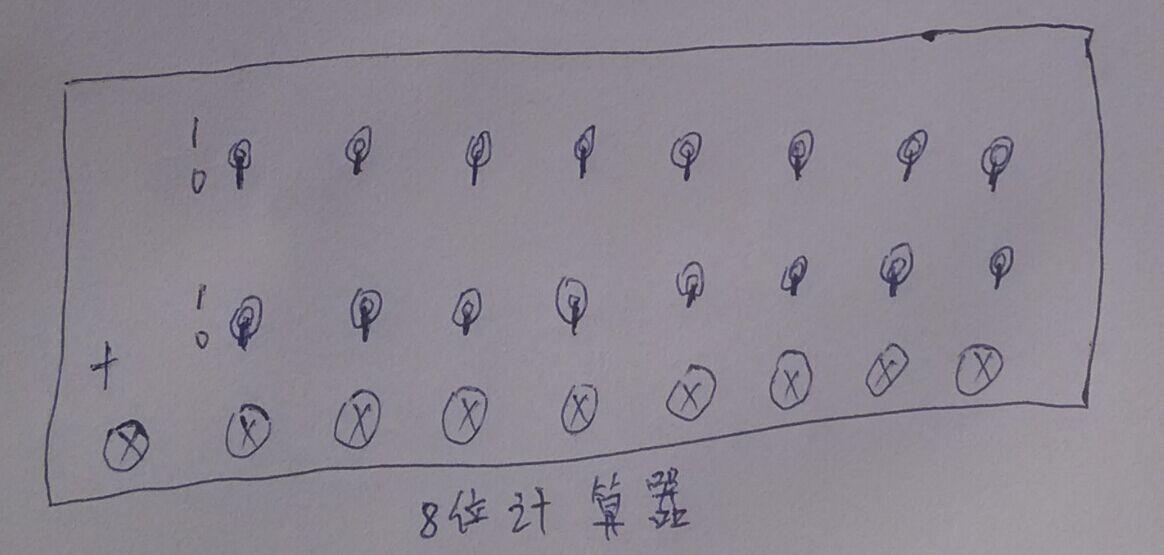 1
0
1
0
+
8位计算器